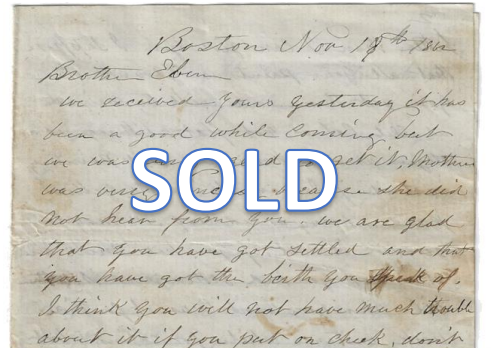 Boston Nov 18th 1862
Brother Eben
we received yours yesterday it has
been a good while coming but
we was get it, Mother
SOLD
was very because she did
not hear from you. we are glad
that you have got settled and that
you have got the birth you speak of.
I think you will not have much trouble
about it if you put on cheek, don't